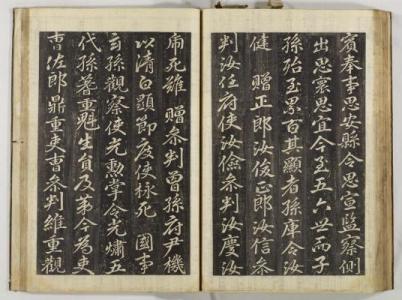 賓奉事思安縣令思宣監察側
出思思宜今至五六世而子
孫殆至累百其顯者孫庫令汝
健 贈正郎汝俊正郎汝信參
判汝任府使汝儉參判汝慶汝
死難 贈參判曾孫府尹機
以清白顯節度使栐死 國事
玄孫觀察使光勳掌令光熽五
代孫蓍重魁生員及第今為吏
曹佐郎鼎重吏曹參判維重觀